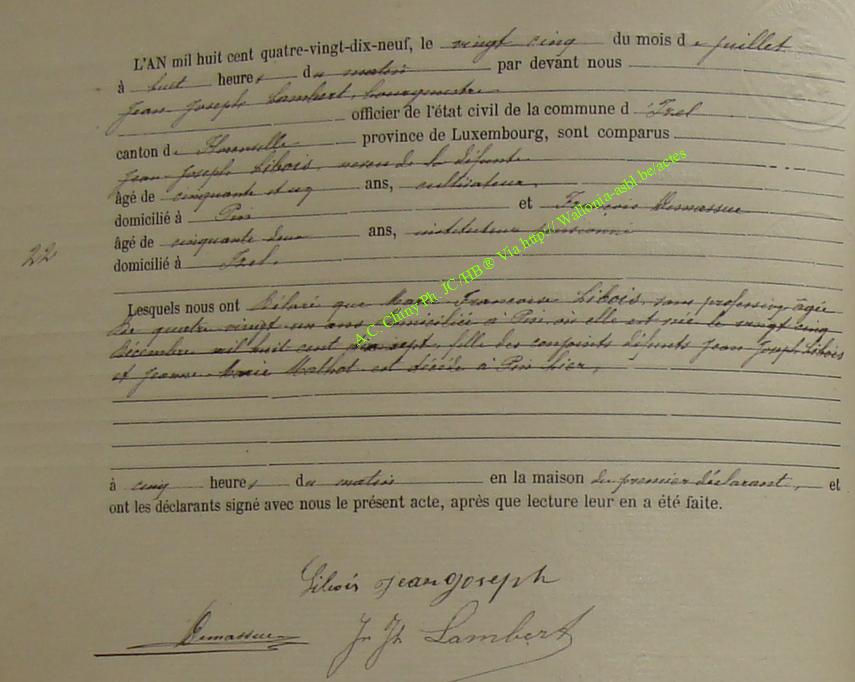 L'AN mil huit cent quatre-vingt-dix-neuf, le vingt cinq du mois de juillet
à huit heures du matin par devant nous
Jean Joseph Lambert, bourgmestre
officier de l'état civil de la commune d'Izel
canton de Florenville province de Luxembourg, sont comparus
Jean-Joseph Libois, neveu de la défunte
âgé de cinquante et un ans, cultivateur,
domicilié à Pin et François Demassue
âgé de cinquante deux ans, instituteur pensionné
domicilié à Izel.
22
Lesquels nous ont déclaré que Marie Françoise Libois, sans profession, âgée
de quatre vingt un ans, domiciliée à Pin où elle est née le vingt cinq
Décembre mil huit cent dix sept, fille des conjoints défunts Jean Joseph Libois
et Jeanne Marie Mathot est décédé à Pin hier,
à cinq heures du matin en la maison du premier déclarant, et
ont les déclarants signé avec nous le présent acte, après que lecture leur en a été faite.
Libois jean joseph
Demassue Jn Jh Lambert
A.C. Chiny Ph. JC /HB ® Via http://Wallonia-asbl.be/actes